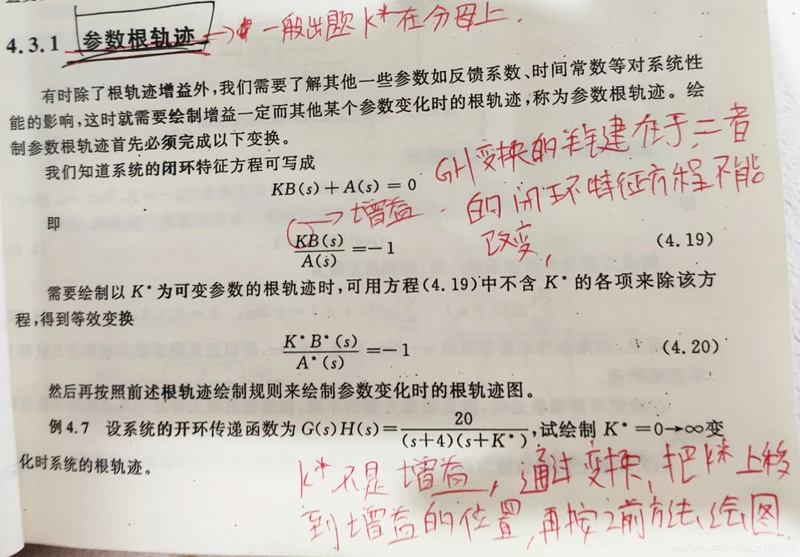 4.3.1 参数根轨迹 → 一般出题 K*在分母上.
有时除了根轨迹增益外,我们需要了解其他一些参数如反馈系数、时间常数等对系统性
能的影响,这时就需要绘制增益一定而其他某个参数变化时的根轨迹,称为参数根轨迹。绘
制参数根轨迹首先必须完成以下变换。
我们知道系统的闭环特征方程可写成
KB(s)+A(s)=0
GH变换的关键在于,二者
的闭环特征方程不能
改变,
即
→增益
KB(s)/A(s)=-1 (4.19)
需要绘制以 K* 为可变参数的根轨迹时,可用方程(4.19)中不含 K* 的各项来除该方
程,得到等效变换
K*B*(s)/A*(s)=-1 (4.20)
然后再按照前述根轨迹绘制规则来绘制参数变化时的根轨迹图。
例 4.7 设系统的开环传递函数为 G(s)H(s)=20/((s+4)(s+K*)),试绘制 K*=0→∞变
化时系统的根轨迹。
K*不是增益,通过变换,把K*上移
到增益的位置,再按之前方法绘图